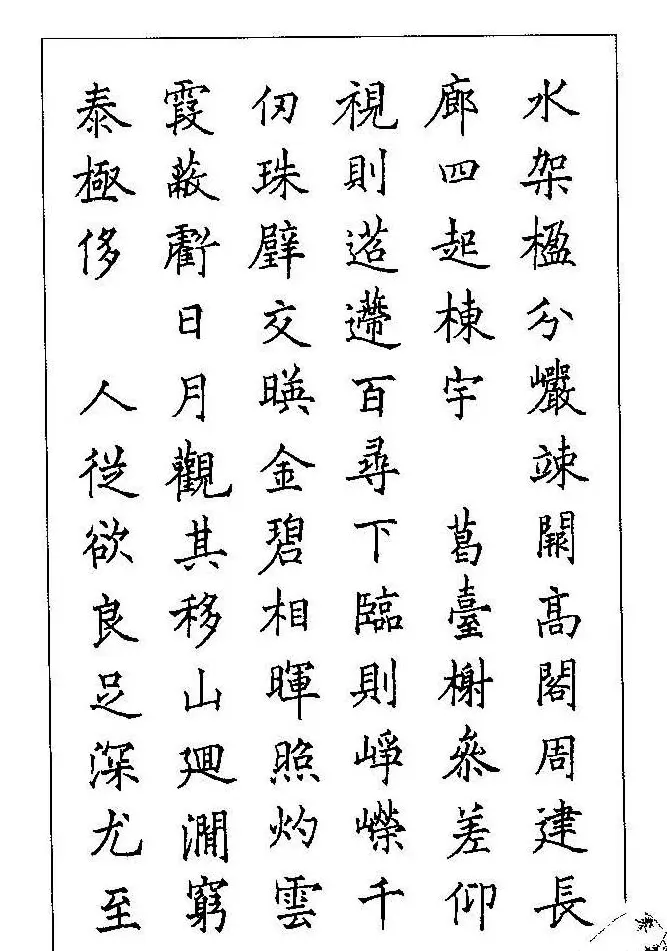 水架楹分巖竦闕髙閣周建長
廊四起棟宇 葛臺榭叅差仰
視則迢遰百尋下臨則崢嶸千
仞珠璧交暎金碧相暉照灼雲
霞蔽虧日月觀其移山廻澗窮
泰極侈 人從欲良足深尤至